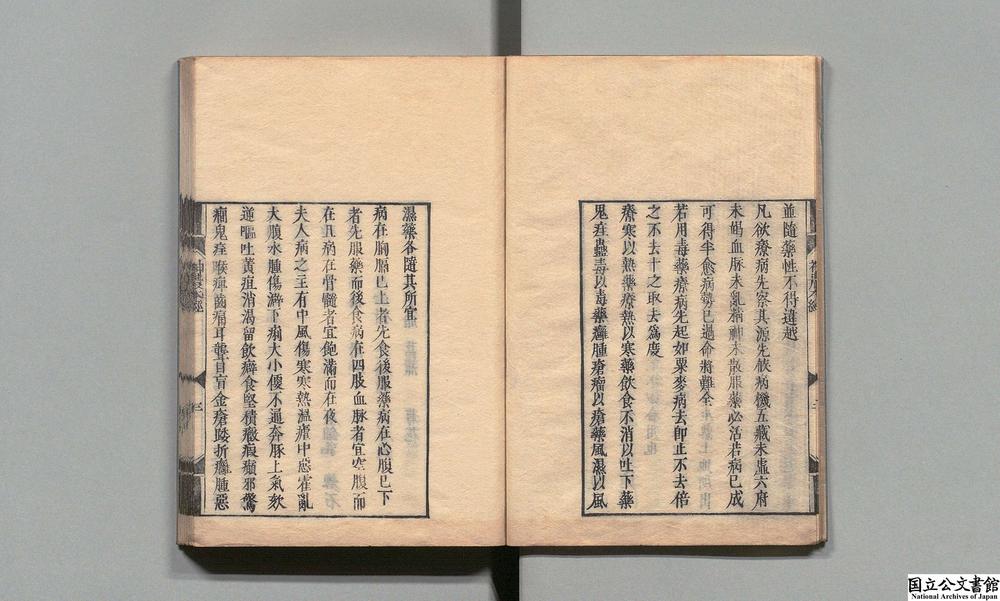 並隨藥性不得違越
凡欲療病先察其源先候病機五藏未虛六府
未竭血脉未亂精神未散服藥必活若病已成
可得半愈病勢已過命將難全
若用毒藥療病先起如粟麥病去即止不去倍
之不去十之取去為度
療寒以熱藥療熱以寒藥飲食不消以吐下藥
鬼疰蠱毒以毒藥癰腫瘡瘤以瘡藥風濕以風
濕藥各隨其所宜
病在胸膈已上者先食後服藥病在心腹已下
者先服藥而後食病在四肢血脉者宜空腹而
在旦病在骨髓者宜飽滿而在夜
夫人病之主有中風傷寒寒熱溫瘧中惡霍亂
大腹水腫腸澼下痢大小便不通奔豚上氣欬
逆嘔吐黃疸消渴留飲癖食堅積癥瘕癲邪驚
癇鬼疰喉痺齒痛耳聾目盲金瘡踒折癰腫惡
三
国立公文書館
National Archives of Japan